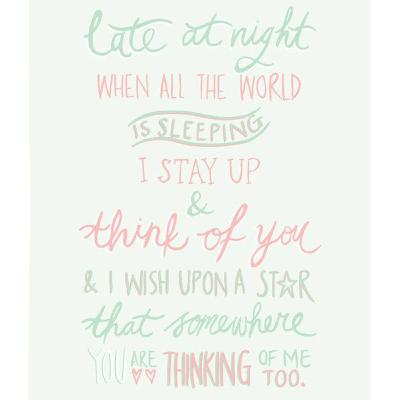 late at night
WHEN ALL THE WORLD
IS SLEEPING
I STAY UP
&
think of you
& I WISH UPON A STAR
that somewhere
YOU ARE THINKING OF ME TOO.